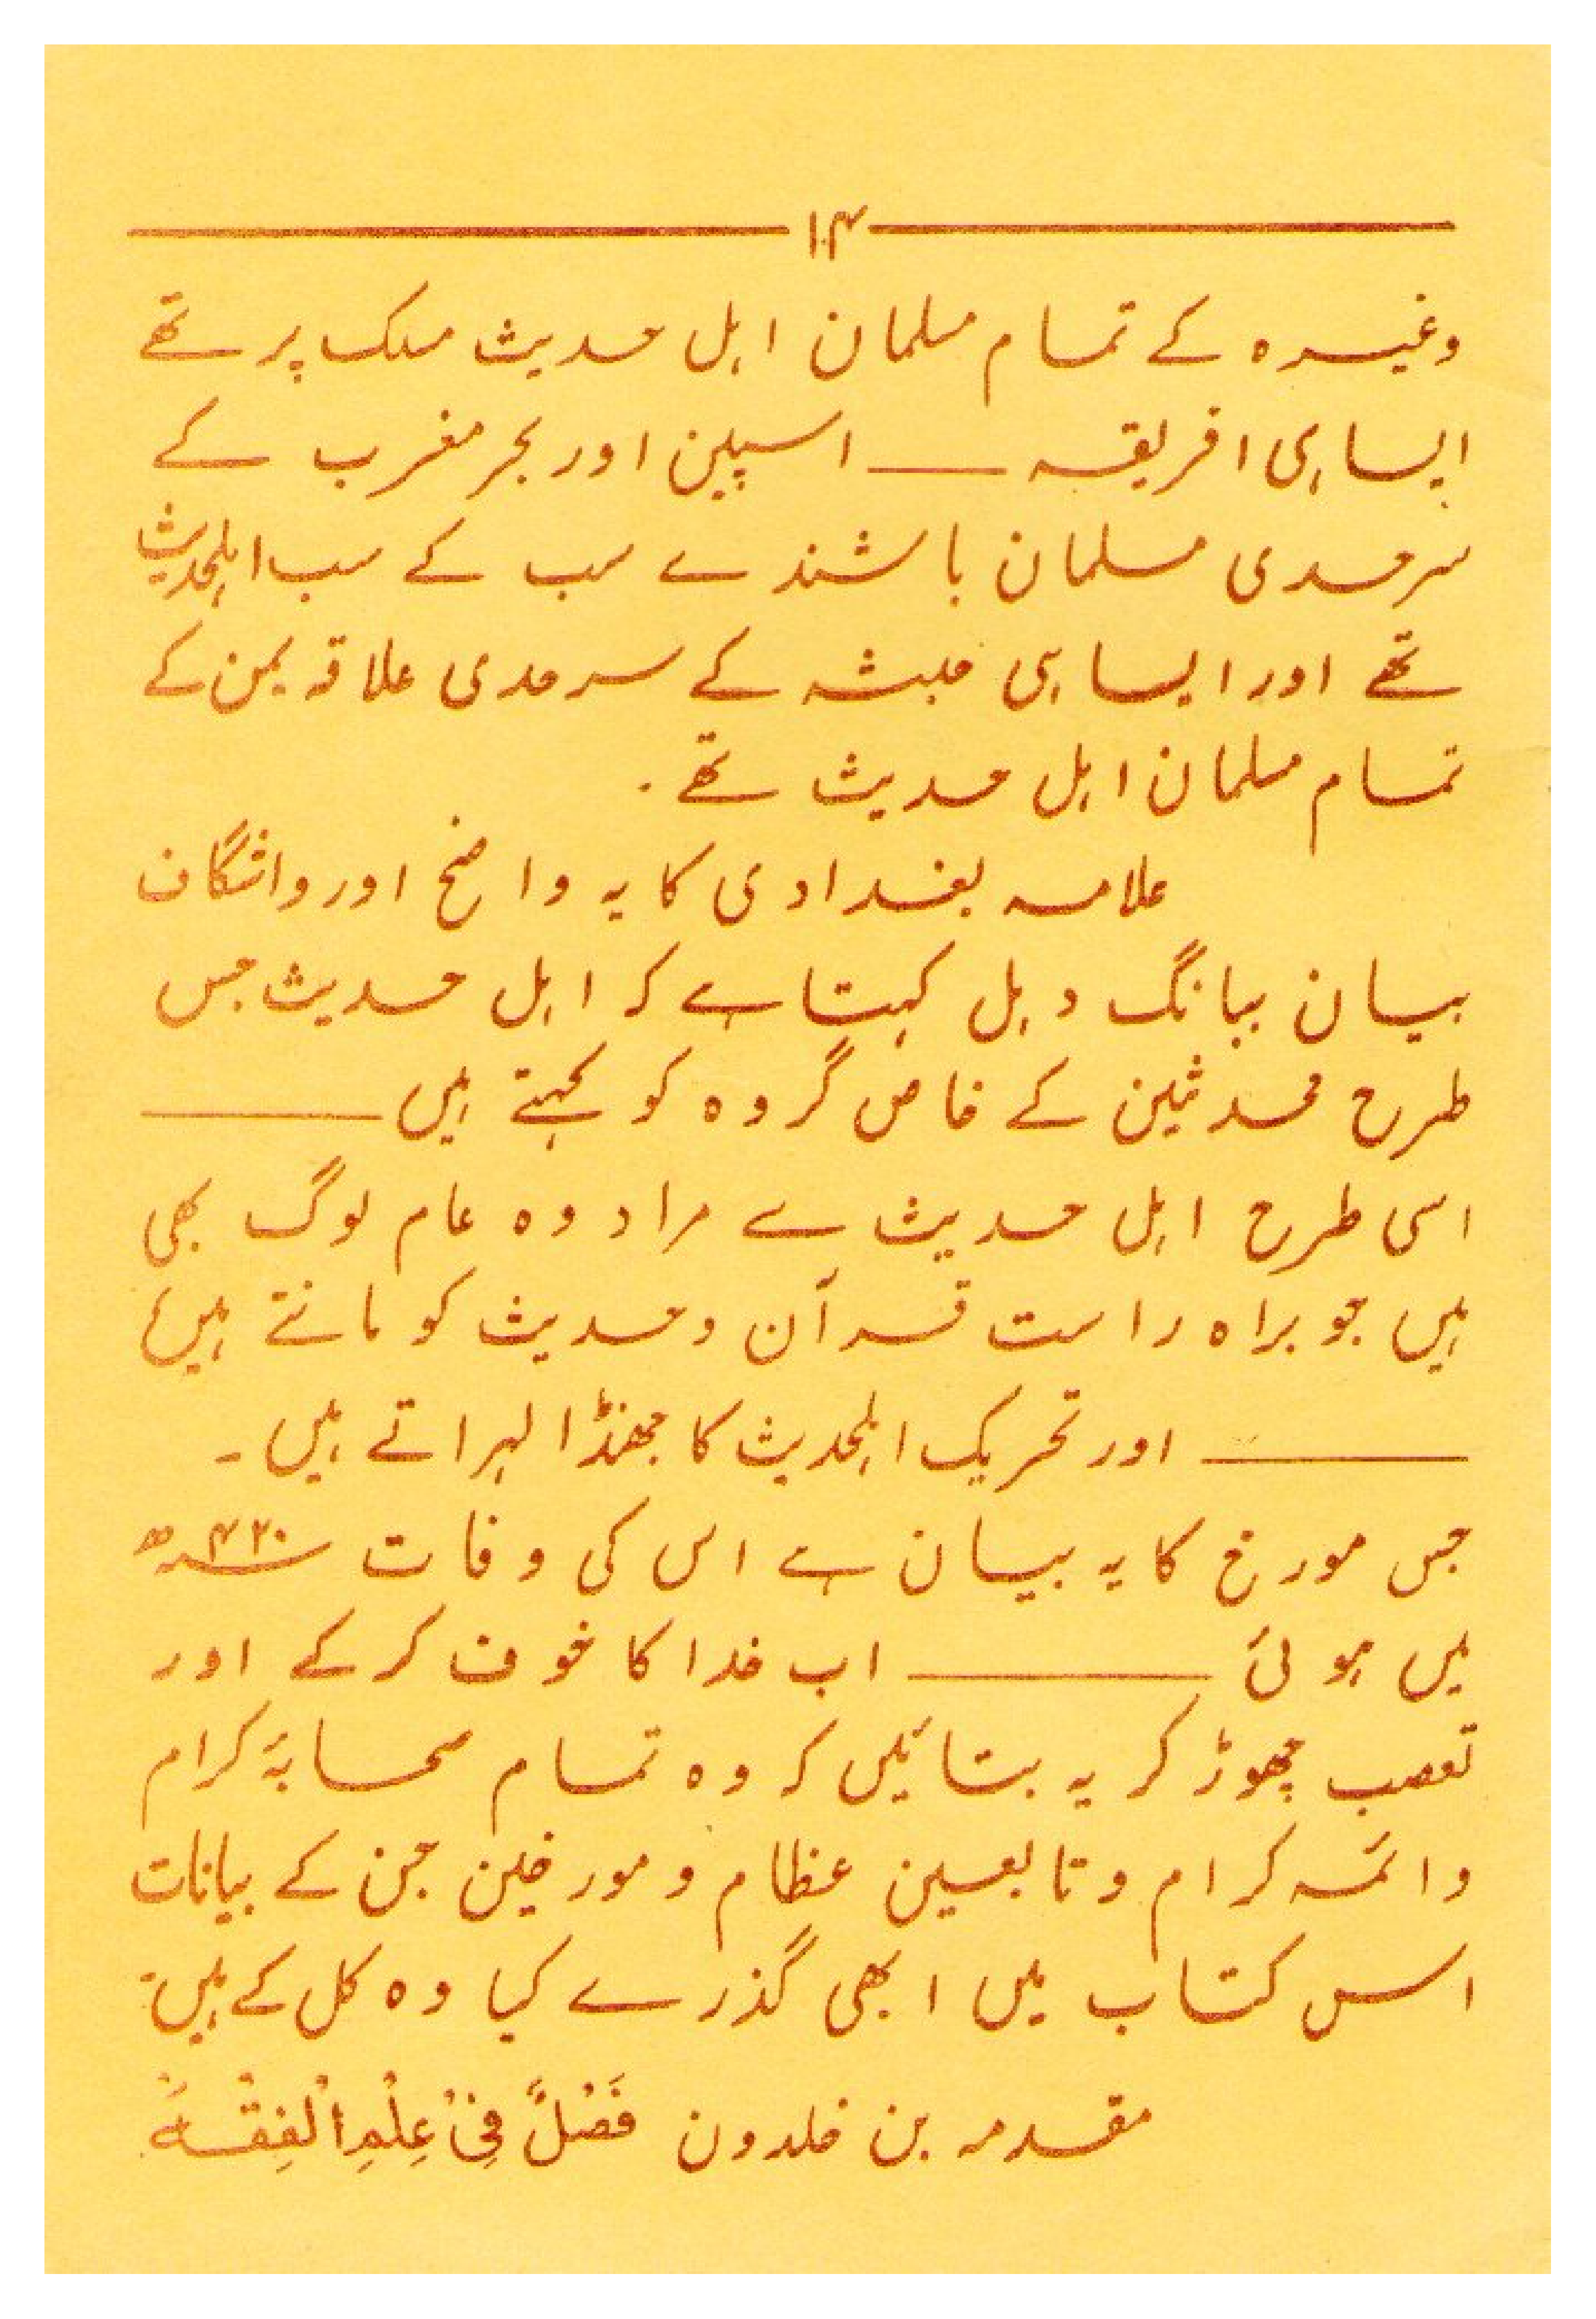 ۱۰۴
وغیرہ کے تمام مسلمان اہل حدیث مسلک پر تھے
ایسا ہی افریقہ ـــــ اسپین اور بحر مغرب کے
سرحدی مسلمان باشندے سب کے سب اہلحدیث
تھے اور ایسا ہی حبشہ کے سرحدی علاقہ یمن کے
تمام مسلمان اہل حدیث تھے۔
علامہ بغدادی کا یہ واضح اور واشگاف
بیان ببانگ دہل کہتا ہے کہ اہل حدیث جس
طرح محدثین کے خاص گروہ کو کہتے ہیں ـــــ
اسی طرح اہل حدیث سے مراد وہ عام لوگ بھی
ہیں جو براہ راست قرآن وحدیث کو مانتے ہیں
ـــــ اور تحریک اہلحدیث کا جھنڈا لہراتے ہیں۔
جس مورخ کا یہ بیان ہے اس کی وفات ۴۲۰ھ
میں ہوئی ـــــ اب خدا کا خوف کرکے اور
تعصب چھوڑ کر یہ بتائیں کہ وہ تمام صحابۂ کرام
وائمہ کرام وتابعین عظام ومورخین جن کے بیانات
اس کتاب میں ابھی گذرے کیا وہ کل کے ہیں؟
مقدمہ بن خلدون فَصْلٌ فِیْ عِلْمِ الْفِقْہِ